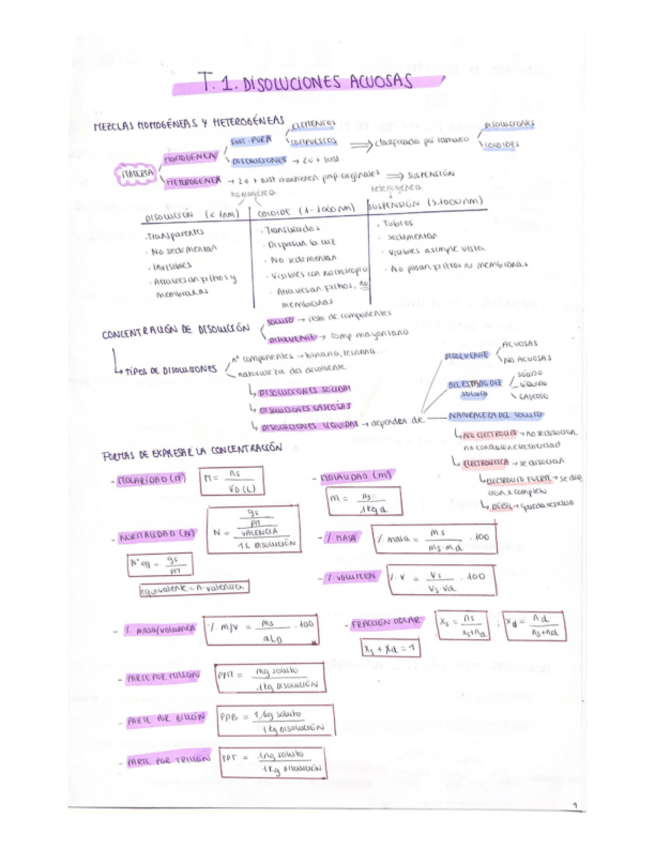 T. 1. DISOLUCIONES ACUOSAS
MEZCLAS HOMOGÉNEAS Y HETEROGÉNEAS
MATERIA
HOMOGÉNEA
SUST. PURA
ELEMENTOS
COMPUESTOS
DISOLUCIONES → 2 o + sust.
⟹ clasificadas por tamaño
DISOLUCIONES
COLOIDES
HETEROGÉNEA → 2 o + sust mantienen prop originales ⟹ SUSPENSIÓN
homogénea
heterogénea
DISOLUCIÓN (< 1nm)
COLOIDE (1-1000nm)
SUSPENSIÓN (>1000nm)
· Transparentes
· No sedimentan
· Invisibles
· Atraviesan filtros y
membranas
· Translúcidos
· Dispersan la luz
· No sedimentan
· Visibles con microscopio
· Atraviesan filtros, no
membranas
· Turbios
· Sedimentan
· Visibles a simple vista
· No pasan filtros ni membranas
CONCENTRACIÓN DE DISOLUCIÓN
SOLUTO → resto de componentes
DISOLVENTE → comp. mayoritario
↳ TIPOS DE DISOLUCIONES
nº componentes → binaria, ternaria...
naturaleza del disolvente
↳ DISOLUCIONES SÓLIDAS
↳ DISOLUCIONES GASEOSAS
↳ DISOLUCIONES LÍQUIDAS → dependen de
DISOLVENTE
ACUOSAS
NO ACUOSAS
DEL ESTADO DEL
SOLUTO
SÓLIDO
LÍQUIDO
GASEOSO
NATURALEZA DEL SOLUTO
↳ NO ELECTROLITO → no se disocian
no conducen electricidad
↳ ELECTROLITO → se disocian
↳ ELECTROLITO FUERTE → se dis
ocian x completo
↳ DÉBIL → queda residuo
FORMAS DE EXPRESAR LA CONCENTRACIÓN
- MOLARIDAD (M)
M = ns / VD (L)
- MOLALIDAD (m)
m = ns / 1kg d
- NORMALIDAD (N)
N = gs / PM / VALENCIA / 1L DISOLUCIÓN
nº eq = gs / PM
equivalente = n · valencia
- % MASA
% masa = ms / ms + md · 100
- % VOLUMEN
% V = Vs / Vs + Vd · 100
- % masa/volumen
% m/v = ms · 100
- FRACCIÓN MOLAR
Xs = ns / ns+nd ; Xd = nd / ns+nd
Xs + Xd = 1
- PARTE POR MILLÓN
PPM = mg soluto / 1kg DISOLUCIÓN
- PARTE POR BILLÓN
PPB = soluto / 1kg DISOLUCIÓN
- PARTE POR TRILLÓN
PPT = 1ng soluto / 1kg DISOLUCIÓN
1